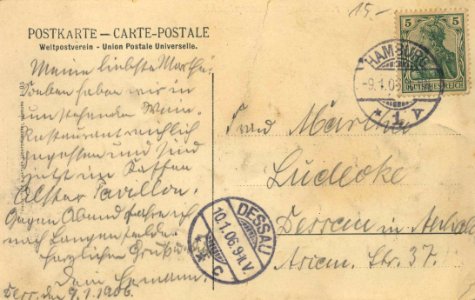 15.-
POSTKARTE — CARTE-POSTALE
Weltpostverein - Union Postale Universelle.
5 5
DEUTSCHES REICH
HAMBURG
-9.1.06
* 1 A
Meine liebste Marthe!
Soeben haben wir in
umstehenden Wein-
Restaurant reichlich
gegessen und sind
jetzt im Kaffee
Alster Pavillon.
Gegen Abend fahre ich
nach Langenfelde.
Herzlichen Gruß
Dein Hermann.
den 9.1.1906.
Frau Martha
Lüdecke
Dessau in Anhalt
Str. 37.
DESSAU
10.1.06.9-11.V.
* c